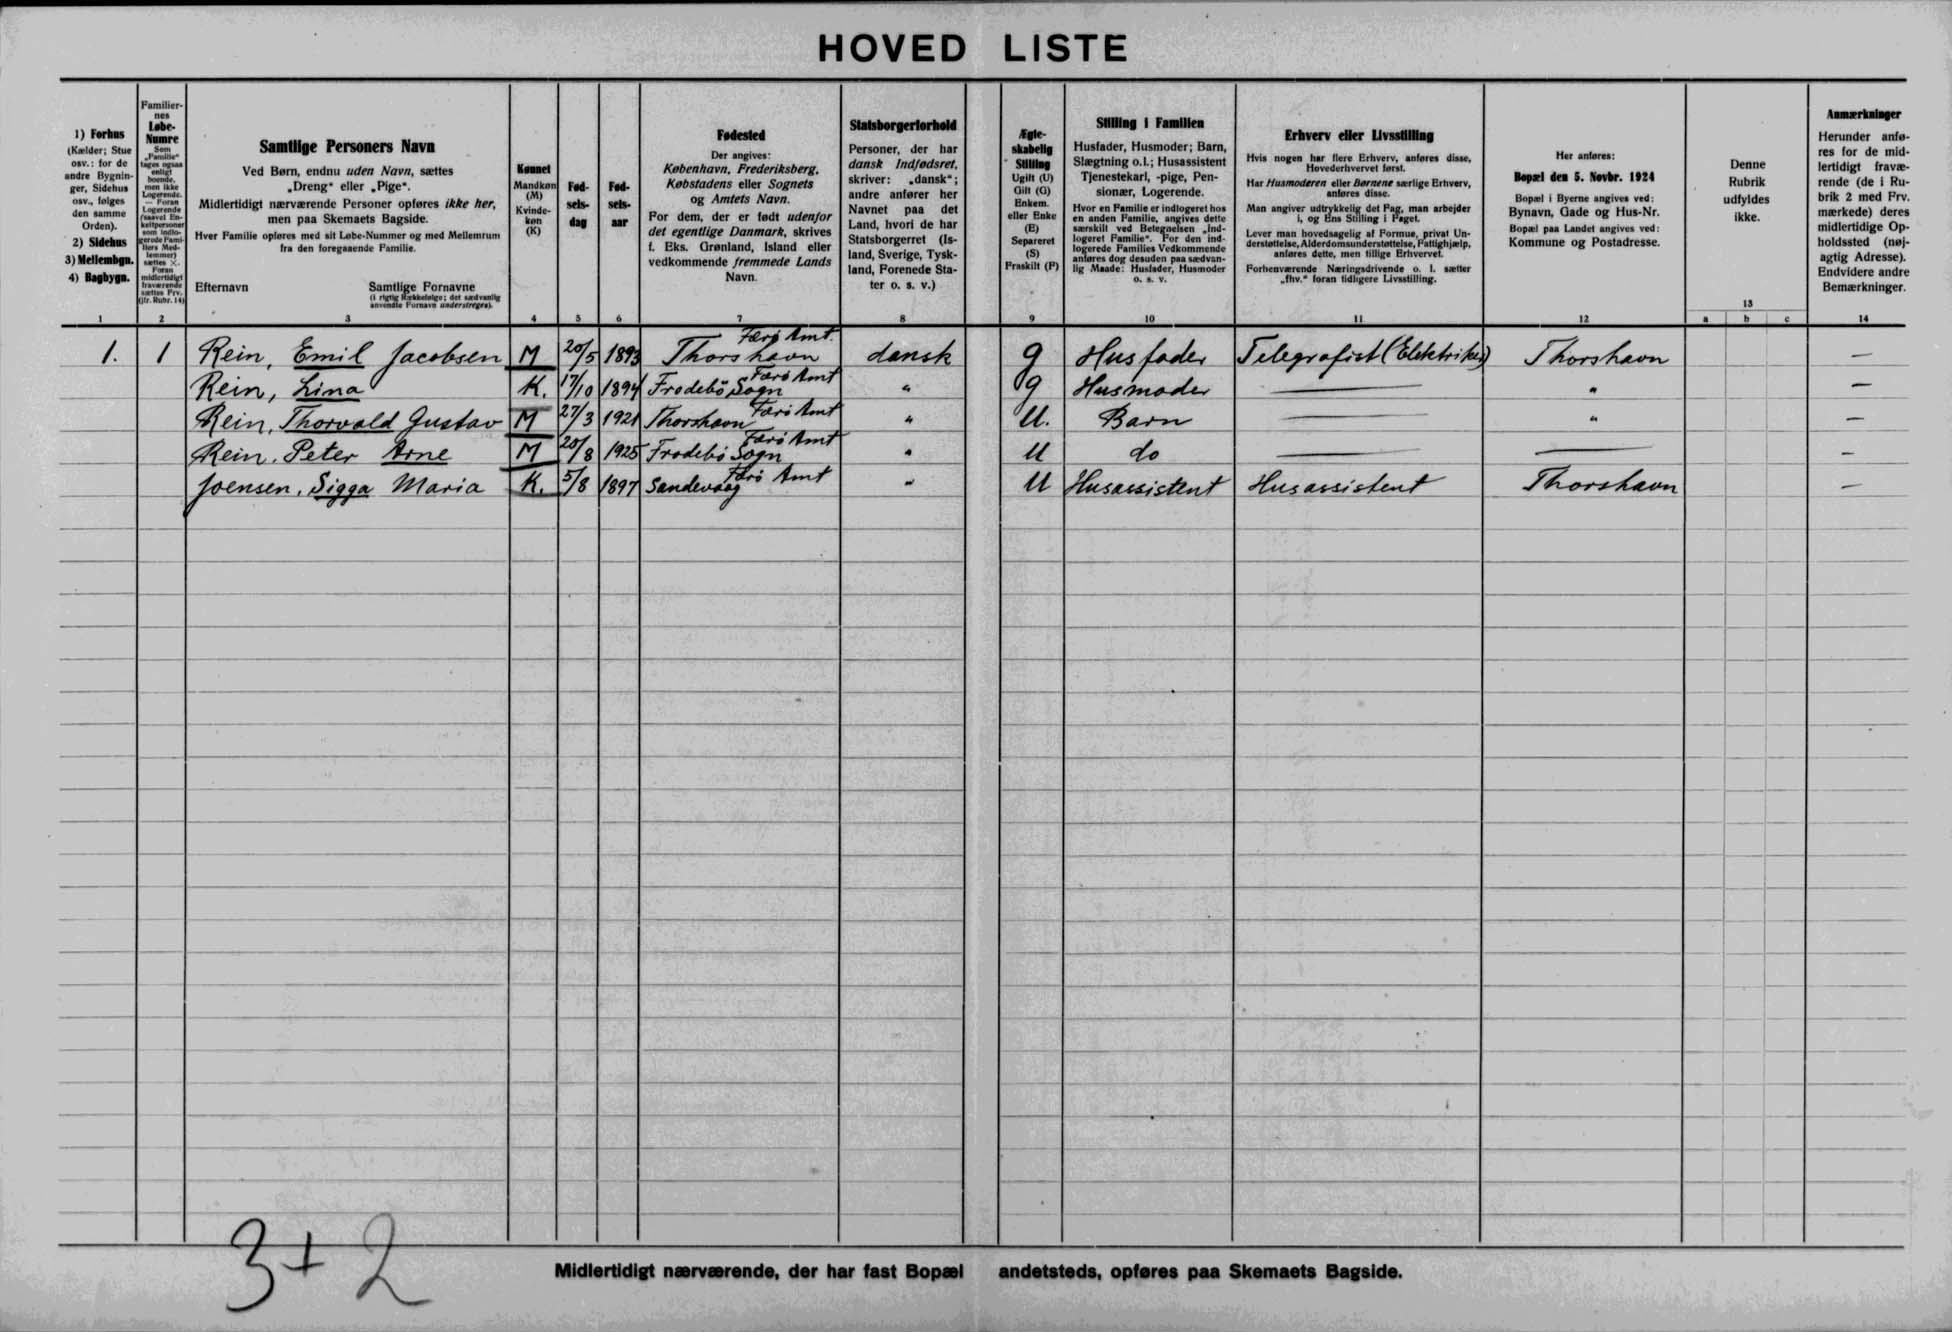 HOVED LISTE
1) Forhus
(Kælder; Stue
osv.: for de
andre Bygnin-
ger, Sidehus
osv., følges
den samme
Orden).
2) Sidehus
3) Mellembgn.
4) Bagbygn.
1
Familier-
nes
Løbe-
Numre
Som
„Familie“
tages ogsaa
enligt
boende,
men ikke
Logerende.
— Foran
Logerende
(saavel En-
keltpersoner
som indlo-
gerede Fami-
liers Med-
lemmer)
sættes ×.
Foran
midlertidigt
fraværende
sættes Frv.
(jfr. Rubr. 14)
2
Samtlige Personers Navn
Ved Børn, endnu uden Navn, sættes
„Dreng“ eller „Pige“.
Midlertidigt nærværende Personer opføres ikke her,
men paa Skemaets Bagside.
Hver Familie opføres med sit Løbe-Nummer og med Mellemrum
fra den foregaaende Familie.
Efternavn Samtlige Fornavne
(i rigtig Rækkefølge; det sædvanlig
anvendte Fornavn understreges).
3
Kønnet
Mandkøn
(M)
Kvinde-
køn
(K)
4
Fød-
sels-
dag
5
Fød-
sels-
aar
6
Fødested
Der angives:
København, Frederiksberg,
Købstadens eller Sognets
og Amtets Navn.
For dem, der er født udenfor
det egentlige Danmark, skrives
f. Eks. Grønland, Island eller
vedkommende fremmede Lands
Navn.
7
Statsborgerforhold
Personer, der har
dansk Indfødsret,
skriver: „dansk“;
andre anfører her
Navnet paa det
Land, hvori de har
Statsborgerret (Is-
land, Sverige, Tysk-
land, Forenede Sta-
ter o. s. v.)
8
Ægte-
skabelig
Stilling
Ugift (U)
Gift (G)
Enkem.
eller Enke
(E)
Separeret
(S)
Fraskilt (F)
9
Stilling i Familien
Husfader, Husmoder; Barn,
Slægtning o.l.; Husassistent
Tjenestekarl, -pige, Pen-
sionær, Logerende.
Hvor en Familie er indlogeret hos
en anden Familie, angives dette
særskilt ved Betegnelsen „Ind-
logeret Familie“. For den ind-
logerede Families Vedkommende
anføres dog desuden paa sædvan-
lig Maade: Husfader, Husmoder
o. s. v.
10
Erhverv eller Livsstilling
Hvis nogen har flere Erhverv, anføres disse,
Hovederhvervet først.
Har Husmoderen eller Børnene særlige Erhverv,
anføres disse.
Man angiver udtrykkelig det Fag, man arbejder
i, og Ens Stilling i Faget.
Lever man hovedsagelig af Formue, privat Un-
derstøttelse, Alderdomsunderstøttelse, Fattighjælp,
anføres dette, men tillige Erhvervet.
Forhenværende Næringsdrivende o. l. sætter
„fhv.“ foran tidligere Livsstilling.
11
Her anføres:
Bopæl den 5. Novbr. 1924
Bopæl i Byerne angives ved:
Bynavn, Gade og Hus-Nr.
Bopæl paa Landet angives ved:
Kommune og Postadresse.
12
Denne
Rubrik
udfyldes
ikke.
13
a b c
Anmærkninger
Herunder anfø-
res for de mid-
lertidigt fravæ-
rende (de i Ru-
brik 2 med Frv.
mærkede) deres
midlertidige Op-
holdssted (nøj-
agtig Adresse).
Endvidere andre
Bemærkninger.
14
1. 1 Rein, Emil Jacobsen M 20/5 1893 Thorshavn Færø Amt. dansk g Husfader Telegrafist (Elektriker) Thorshavn —
Rein, Lina K. 17/10 1894 Frodebö Sogn Færö Amt " g Husmoder — " —
Rein, Thorvald Gustav M 27/3 1921 Thorshavn Færö Amt " U. Barn — " —
Rein. Peter Arne M 20/8 1925 Frodebö Sogn Færö Amt " U do — — —
Joensen, Sigga Maria K. 5/8 1897 Sandevaag Færö Amt " U Husassistent Husassistent Thorshavn —
3+2
Midlertidigt nærværende, der har fast Bopæl andetsteds, opføres paa Skemaets Bagside.